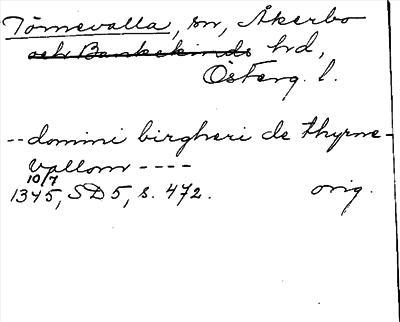 Törnevalla, sn, Åkerbo
och Bankekinds hd,
Österg. l.
-- domini birgheri de thyrne-
vallom ----
10/7
1345, SD 5, s. 472. orig.